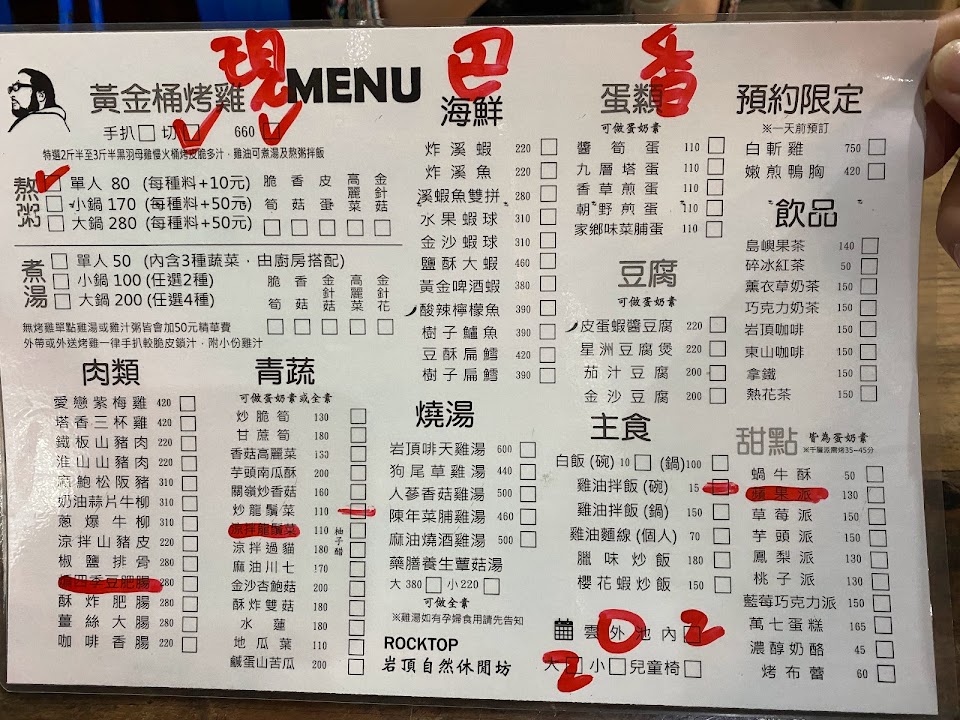 現 巴 番
MENU
黃金桶烤雞
手扒□ 切□ 660 □
特選2斤半至3斤半黑羽母雞慢火桶烤皮脆多汁，雞油可煮湯及熬粥拌飯
熬粥
□ 單人 80 (每種料+10元)
□ 小鍋 170 (每種料+50元)
□ 大鍋 280 (每種料+50元)
脆筍 香菇 皮蛋 高麗菜 金針菇
煮湯
□ 單人 50 (內含3種蔬菜，由廚房搭配)
□ 小鍋 100 (任選2種)
□ 大鍋 200 (任選4種)
脆筍 香菇 金針菇 高麗菜 金針花
無烤雞單點雞湯或雞汁粥皆會加50元精華費
外帶或外送烤雞一律手扒較脆皮鎖汁，附小份雞汁
肉類
愛戀紫梅雞 420 □
塔香三杯雞 420 □
鐵板山豬肉 220 □
淮山山豬肉 220 □
鮑松阪豬 310 □
奶油蒜片牛柳 310 □
蔥爆牛柳 310 □
涼拌山豬皮 220 □
椒鹽排骨 280 □
四季豆肥腸 280 □
酥炸肥腸 280 □
薑絲大腸 280 □
咖啡香腸 240 □
青蔬
可做蛋奶素或全素
炒脆筍 130 □
甘蔗筍 180 □
香菇高麗菜 130 □
芋頭南瓜酥 200 □
關嶺炒香菇 160 □
炒龍鬚菜 110 □
涼拌龍鬚菜 110 □
柚子醋
涼拌過貓 180 □
麻油川七 170 □
金沙杏鮑菇 200 □
酥炸雙菇 180 □
水蓮 180 □
地瓜葉 110 □
鹹蛋山苦瓜 200 □
海鮮
炸溪蝦 220 □
炸溪魚 220 □
溪蝦魚雙拼 280 □
水果蝦球 310 □
金沙蝦球 310 □
鹽酥大蝦 460 □
黃金啤酒蝦 380 □
酸辣檸檬魚 390 □
樹子鱸魚 390 □
豆酥扁鱈 420 □
樹子扁鱈 390 □
燒湯
岩頂啡天雞湯 600 □
狗尾草雞湯 440 □
人蔘香菇雞湯 500 □
陳年菜脯雞湯 460 □
麻油燒酒雞湯 500 □
藥膳養生蕈菇湯
大 380 □ 小 220 □
可做全素
※雞湯如有孕婦食用請先告知
ROCKTOP
岩頂自然休閒坊
蛋類
可做蛋奶素
醬筍蛋 110 □
九層塔蛋 110 □
香草煎蛋 110 □
朝野煎蛋 110 □
家鄉味菜脯蛋 110 □
豆腐
可做蛋奶素
皮蛋蝦醬豆腐 220 □
星洲豆腐煲 220 □
茄汁豆腐 200 □
金沙豆腐 200 □
主食
白飯 (碗) 10 □ (鍋)100 □
雞油拌飯 (碗) 15 □
雞油拌飯 (鍋) 150 □
雞油麵線 (個人) 70 □
臘味炒飯 180 □
櫻花蝦炒飯 150 □
雲 外 池 內 □
0 2
大□ 小□ 兒童椅□
2
預約限定
※一天前預訂
白斬雞 750 □
嫩煎鴨胸 420 □
飲品
島嶼果茶 140 □
碎冰紅茶 50 □
薰衣草奶茶 150 □
巧克力奶茶 150 □
岩頂咖啡 150 □
東山咖啡 150 □
拿鐵 150 □
熱花茶 150 □
甜點 皆為蛋奶素
※千層派需烤35~45分
蝸牛酥 50 □
蘋果派 130 □
草莓派 150 □
芋頭派 150 □
鳳梨派 130 □
桃子派 130 □
藍莓巧克力派 150 □
萬七蛋糕 165 □
濃醇奶酪 45 □
烤布蕾 60 □